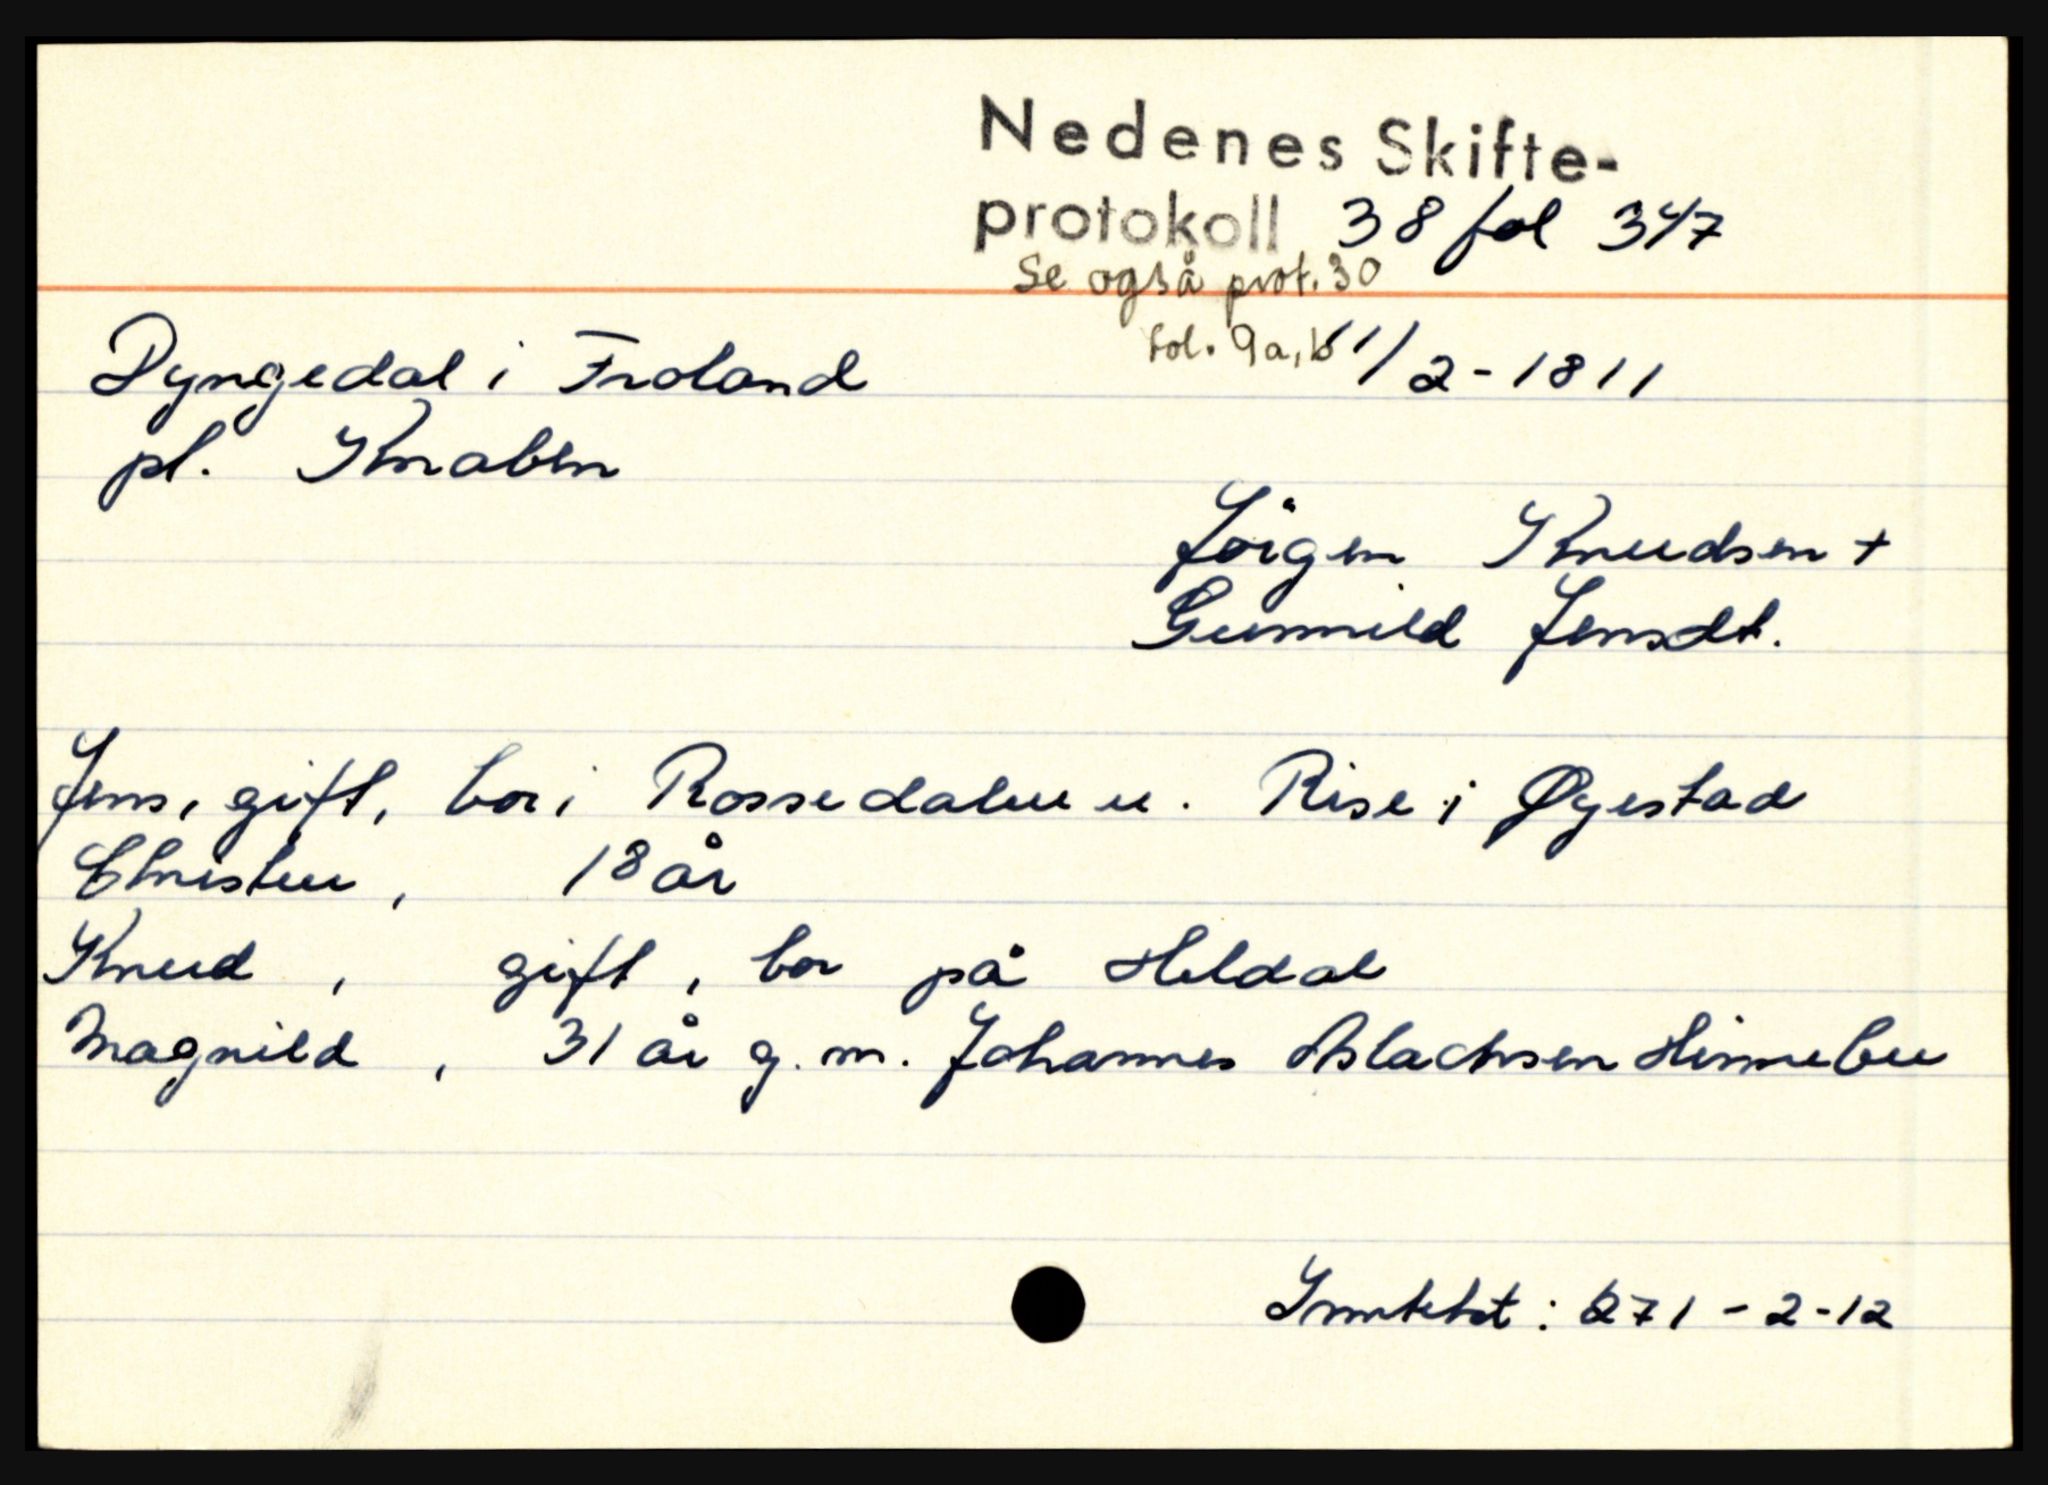 Nedenes Skifte-
protokoll 38 fol 347
Se også prot. 30
fol. 9a,b
Dyngedal i Froland 11/2-1811
pl. Knaben
Jörgen Knudsen +
Gunnild Jensdt.
Jens, gift, bor i Rossedalen u. Rise i Øyestad
Christen, 18 år
Knud, gift, bor på Heldal
Magnild, 31 år g. m. Johannes Aslachsen Hinnebu
Inntekt: 271-2-12